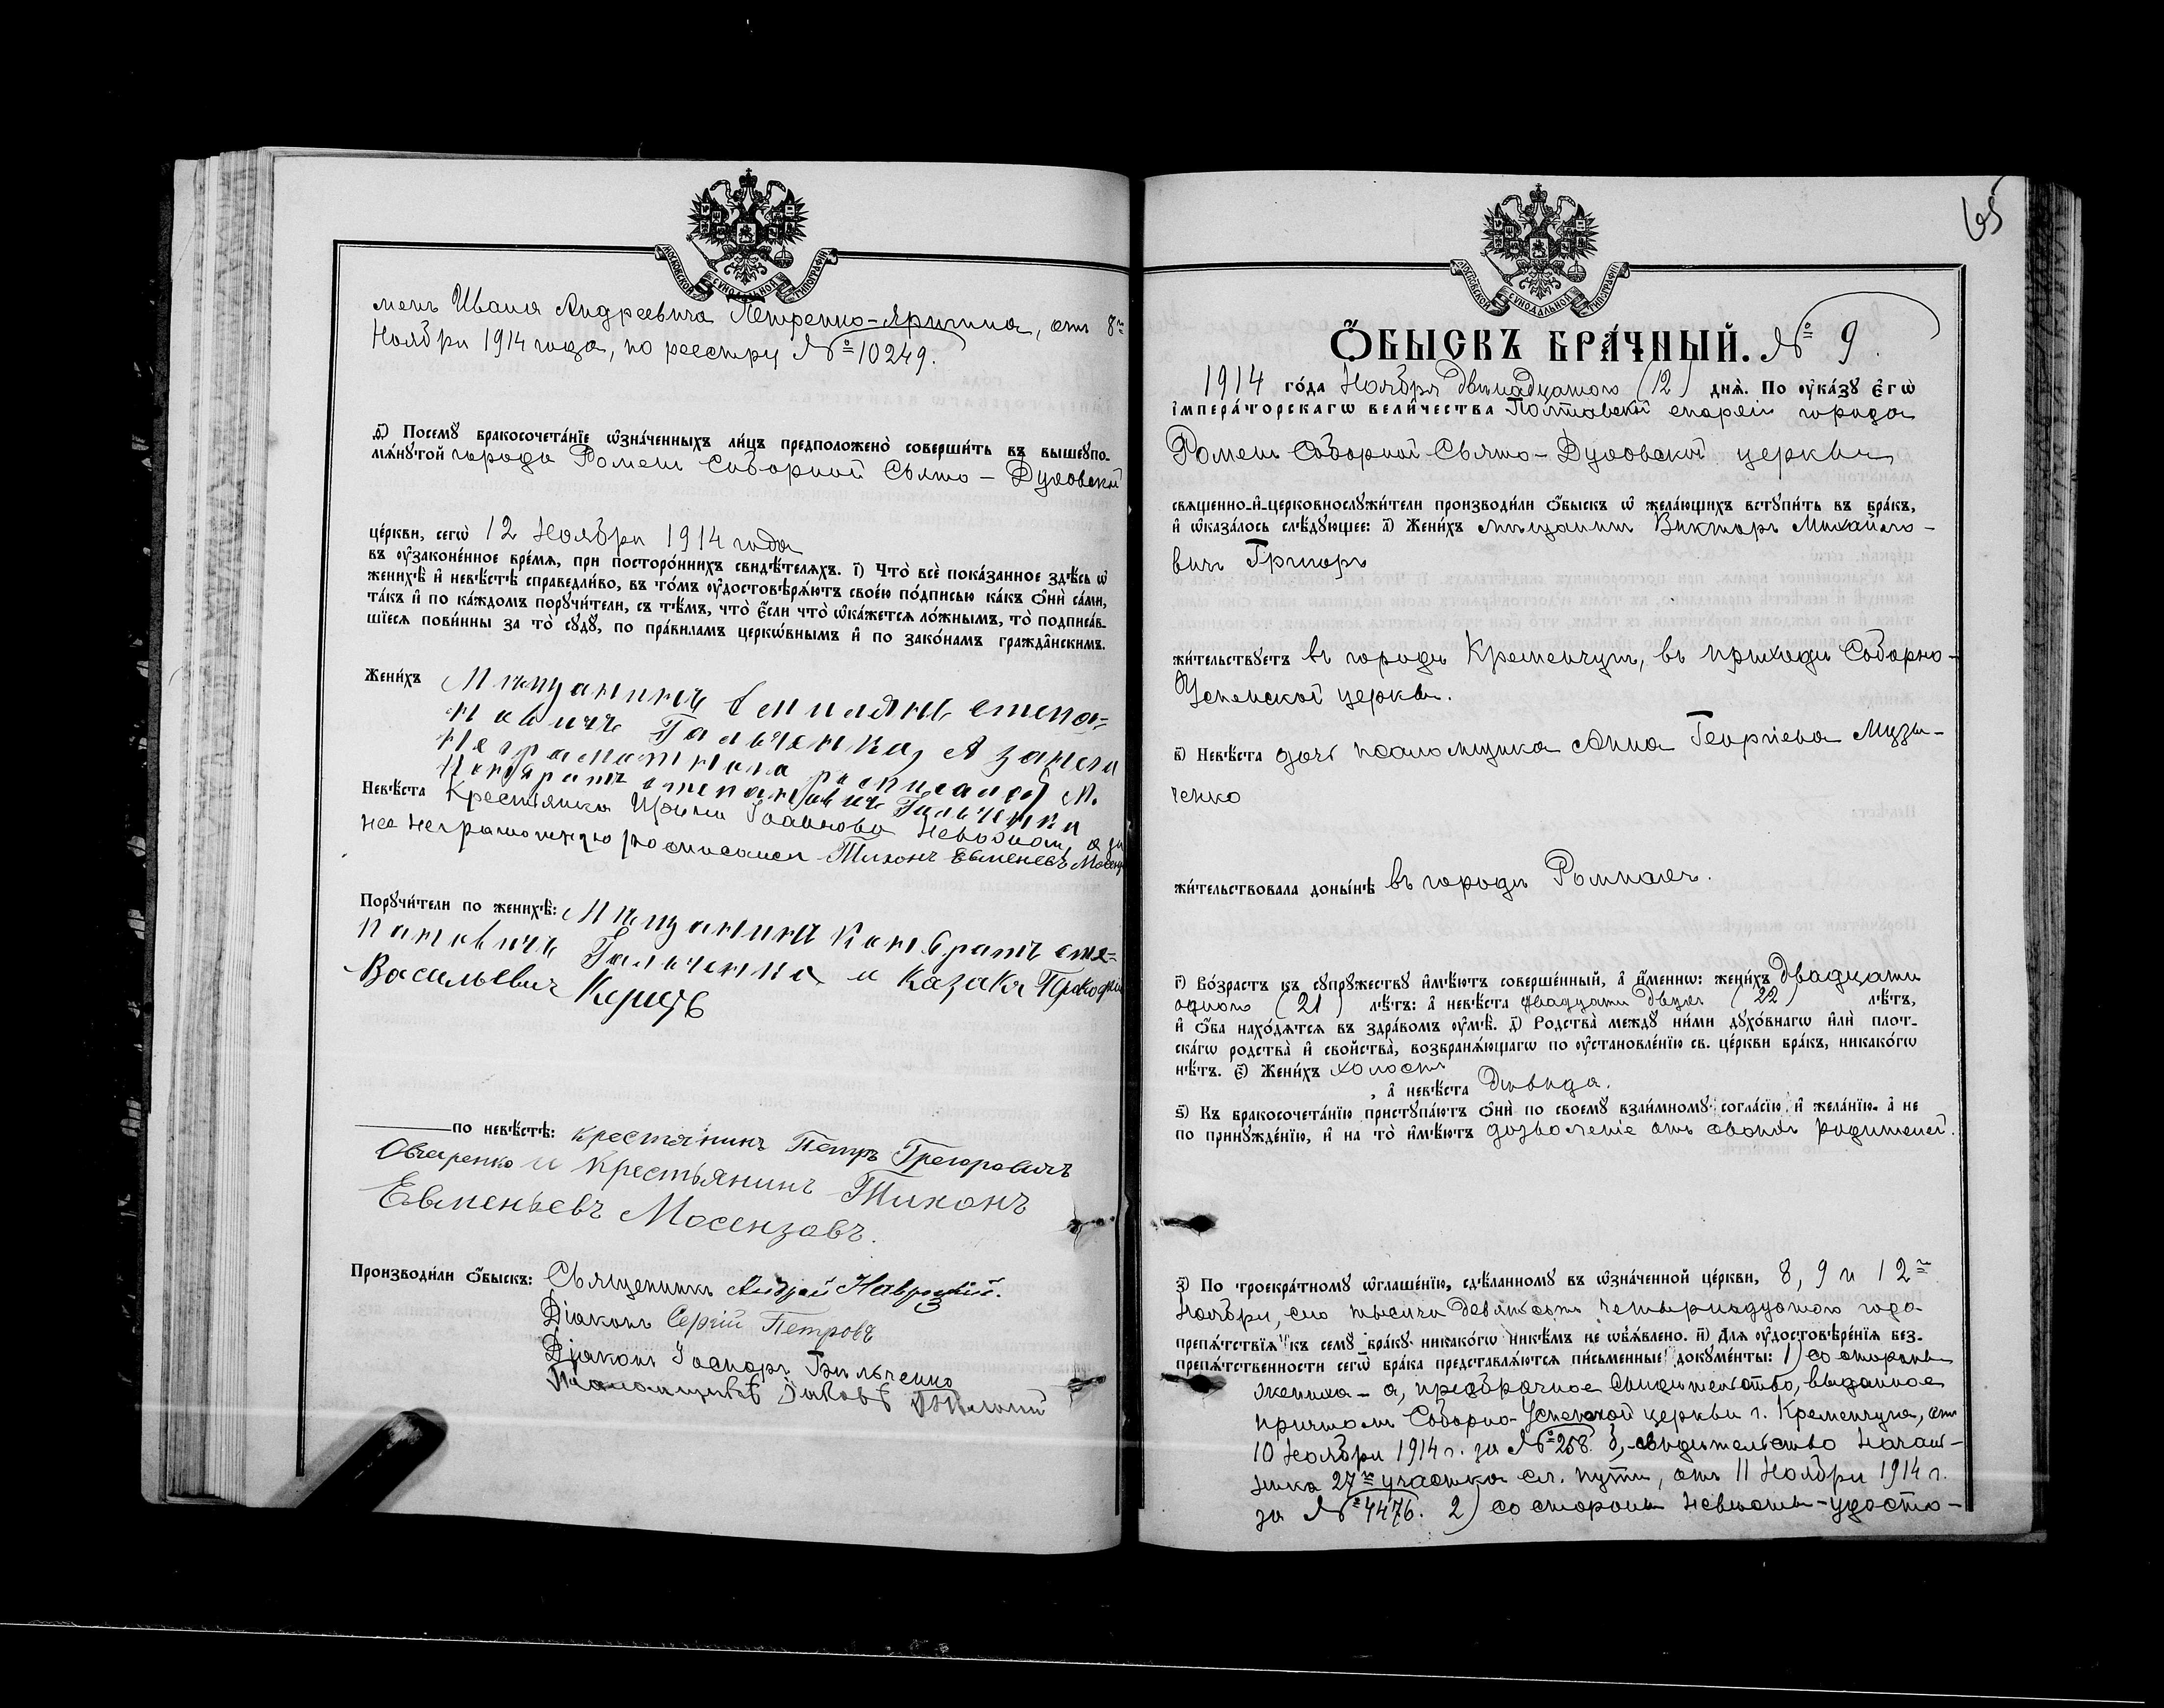 МОСКОВСКОЙ СѴНОДАЛЬНОЙ ТИПОГРАФІИ
менъ Ивана Андреевича Петренко-Яришка, отъ 8го
Ноября 1914 года, по реестру № 10249.
ѳ҃) Посемꙋ̀ бракосочета́нїе ѡ҆зна́ченныхъ ли́цъ предположено̀ соверши́ть въ вышеꙋпо-
мѧ́нꙋтой города Роменъ Соборной Свято-Духовской
це́ркви, сегѡ̀ 12 Ноября 1914 года
въ ᲂу҆зако́ненное вре́мѧ, при посторо́ннихъ свидѣ́телѧхъ. і҃) Что̀ всѐ пока́занное здѣ́сь ѡ҆
женихѣ̀ и҆ невѣ́стѣ справедли́во, въ то́мъ ᲂу҆достовѣрѧ́ютъ свое́ю по́дписью ка́къ ѻ҆нѝ са́ми,
та́къ и҆ по ка́ждомъ порꙋчи́тели, съ тѣ́мъ, что̀ є҆́сли что̀ ѡ҆ка́жетсѧ ло́жнымъ, то̀ подписа́в-
шїесѧ пови́нны за то̀ сꙋдꙋ̀, по пра́виламъ церко́внымъ и҆ по зако́намъ гражда̑нскимъ.
Жени́хъ Мещанинъ Емилянъ степа=
новичъ Гальченко, А занего
неграматнаго росписался М.
Кондратъ степановичъ Гальченко
Невѣ́ста Крестьянка Ирина Іоаннова а за
нее неграмотную росписался Тихонъ Евменевъ
Порꙋчи́тели по женихѣ̀: Мещанинъ Кондратъ сте=
пановичъ Гальченко и казакъ Прокофій
Васильевич
по невѣ́стѣ: крестянинъ Петръ Грегоровичъ
Овчаренко и крестьянинъ Тихонъ
Евменьевъ Мосензовъ.
Производи́ли ѻ҆́быскъ: Священникъ Андрей Навроцкій.
Діаконъ Сергій Петровъ
Діаконъ Іосифъ Бильченко
Псаломщикъ Іаковъ
65
МОСКОВСКОЙ СѴНОДАЛЬНОЙ ТИПОГРАФІИ
Ѻ҆́БЫСКЪ БРА́ЧНЫЙ. № 9.
1914 го́да Ноября двѣнадцатого (12) днѧ̀. По ᲂу҆ка́зꙋ є҆гѡ̀
і҆мпера́торскагѡ вели́чества Полтавской епархіи города
Роменъ Соборной Свято-Духовской церкви
свѧщенно-и҆-церковнослꙋжи́тели производи́ли ѻ҆́быскъ ѡ҆ жела́ющихъ встꙋпи́ть въ бра́къ,
и҆ ѡ҆каза́лось слѣ́дꙋющее: а҃) Жени́хъ мѣщанинъ Викторъ Михайло-
вичъ Григоръ
жи́тельствꙋетъ въ городѣ Кременчугѣ, въ приходѣ Соборно-
Успенской церкви.
в҃) Невѣ́ста дочь псаломщика Анна Георгіева Музы-
ченко
жи́тельствовала доны́нѣ въ городѣ Ромнахъ.
г҃) Во́зрастъ къ сꙋпрꙋ́жествꙋ и҆мѣ́ютъ соверше́нный, а҆ и҆́меннѡ: жени́хъ двадцати
одного (21) лѣ́тъ: а҆ невѣ́ста двадцати двухъ (22) лѣ́тъ,
и҆ ѻ҆́ба нахо́дѧтсѧ въ здра́вомъ ᲂу҆мѣ̀. д҃) Родства̀ междꙋ̀ ни́ми дꙋхо́внагѡ и҆лѝ плот-
ска́гѡ родства̀ и҆ сво́йства, возбранѧ́ющагѡ по ᲂу҆становле́нїю св. це́ркви бра́къ, никако́гѡ
нѣ́тъ. є҃) Жени́хъ холостъ
, а҆ невѣ́ста дѣвица.
ѕ҃) Къ бракосочета́нїю пристꙋпа́ютъ ѻ҆нѝ по своемꙋ̀ взаи́мномꙋ согла́сїю и҆ жела́нїю. а҆ не
по принꙋжде́нїю, и҆ на то̀ и҆мѣ́ютъ дозволеніе отъ своихъ родителей.
з҃) По троекра́тномꙋ ѡ҆глаше́нїю, сдѣ́ланномꙋ въ ѡ҆зна́ченной це́ркви, 8, 9 и 12го
Ноября, сего тысяча девятьсотъ четырнадцатого года
препѧ́тствїѧ къ семꙋ̀ бра́кꙋ никако́гѡ никѣ́мъ не ѡ҆бъѧ́влено. и҃) Длѧ̀ ᲂу҆достовѣре́нїѧ без-
препѧ́тственности сегѡ̀ бра́ка представлѧ́ютсѧ пи́сьменные докꙋме́нты: 1) со стороны
жениха - а, предбрачное свидѣтельство, выданное
причтомъ Соборно-Успенской церкви г. Кременчуга, отъ
10 Ноября 1914 г. за № 258. б, свидѣтельство Началь-
ника 27го участка сл. пути, отъ 11 Ноября 1914 г.
за № 4476. 2) со стороны невѣсты - удосто-